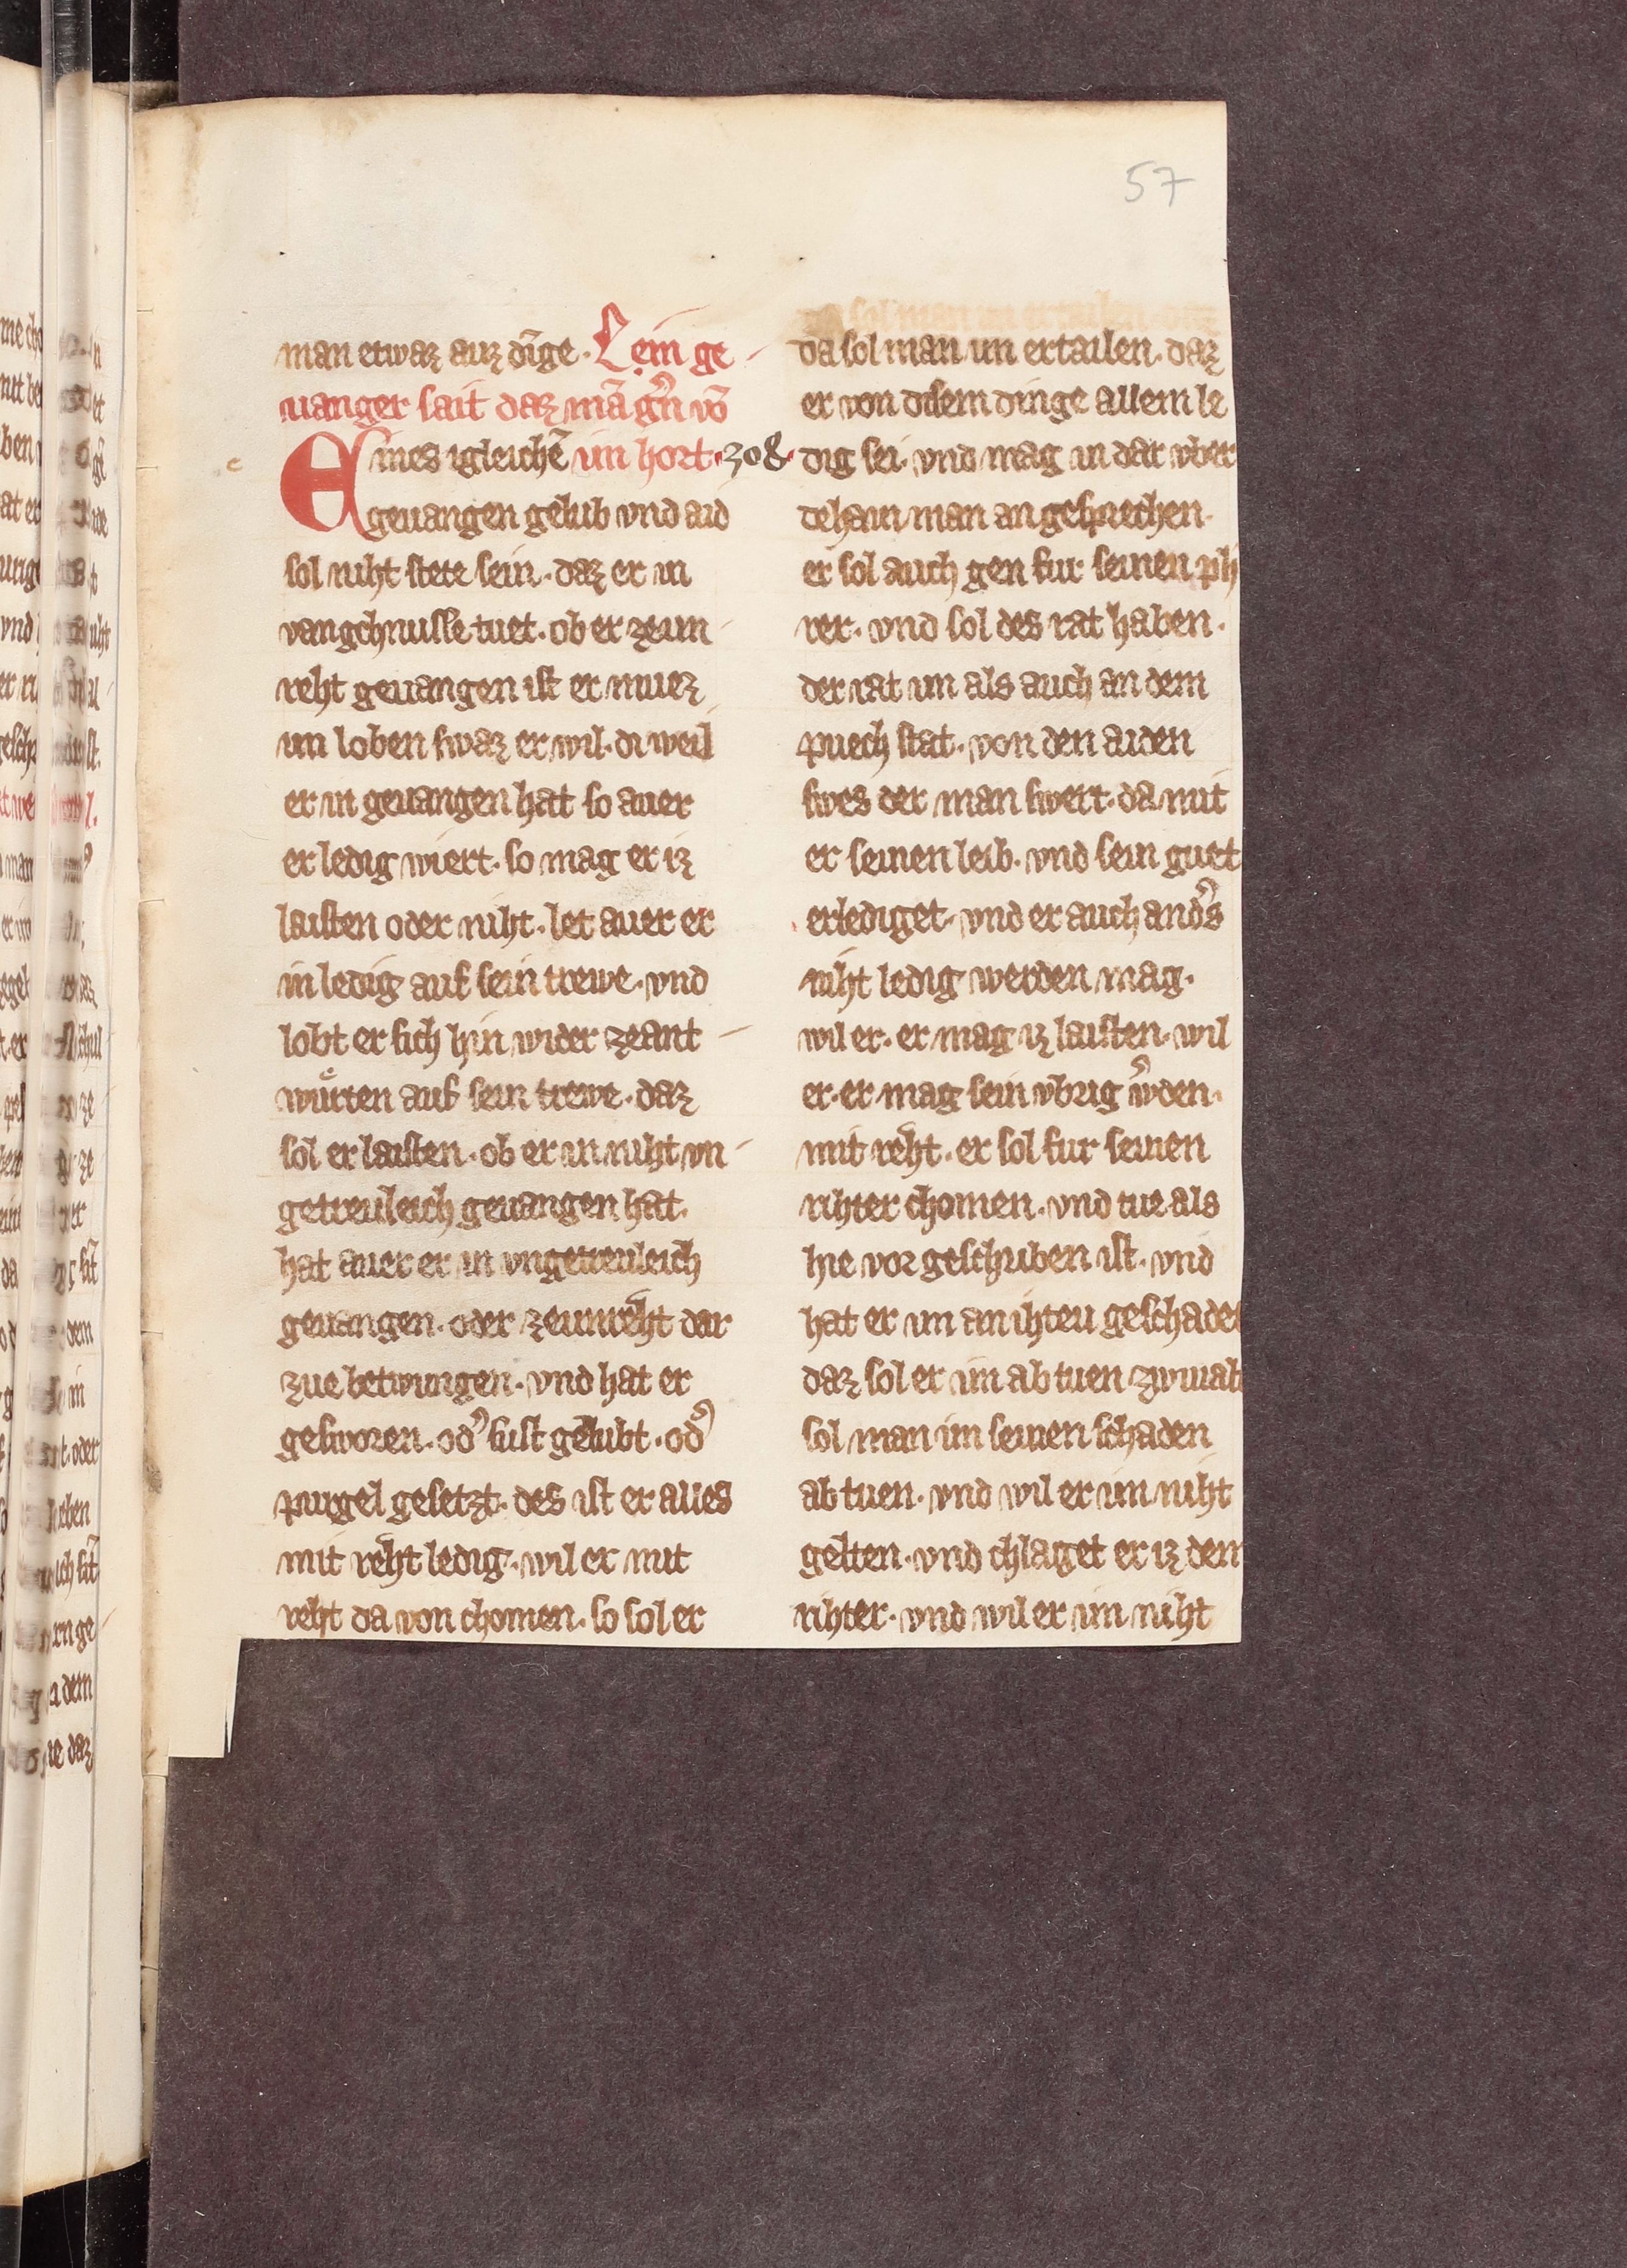 57
man etwaz auz dīge · Kein ge-
uanger sait daz mā gͤn vō
Eines igleichē im hort · 308 ·
geuangen gelub vnd aid
sol niht stete sein · daz er in
vangchnusse tuet · ob er zeun-
reht geuangen ist er muez
im loben swaz er wil · di weil
er in geuangen hat so auer
er ledig wiert · so mag er iz
laisten oder niht · let auer er
in ledig auf sein trewe · vnd
lobt er sich hin wider zeant-
wuͤrten auf sein trewe · daz
sol er laisten · ob er in niht vn-
getreuleich geuangen hat ·
hat auer er in vngetreuleich
geuangen · oder zeunreht dar
zue betwungen · vnd hat er
gesworen · od' sust gelubt · od'
purgel gesetzt · des ist er alles
mit reht ledig · wil er mit
reht da von chomen · so sol er
da sol man im ertailen · daz
er von disem dinge allem le
dig sei · vnd mag in dar vber
dehain man an gesprechen ·
er sol auch gen fur seinen ph
rer · vnd sol des rat haben ·
der rat im als auch an dem
puech stat · von den aiden
swes der man swert · da mit
er seinen leib · vnd sein guet
erlediget · vnd er auch and's
niht ledig werden mag ·
wil er · er mag iz laisten · wil
er · er mag sein vbrig w'den ·
mit reht · er sol fur seinen
rihter chomen · vnd tue als
hie vor geschriben ist · vnd
hat er im an ihteu geschadet
daz sol er im ab tuen zwiualt
sol man im seinen schaden
ab tuen · vnd wil er im niht
gelten · vnd chlaget er iz dem
rihter · vnd wil er im niht